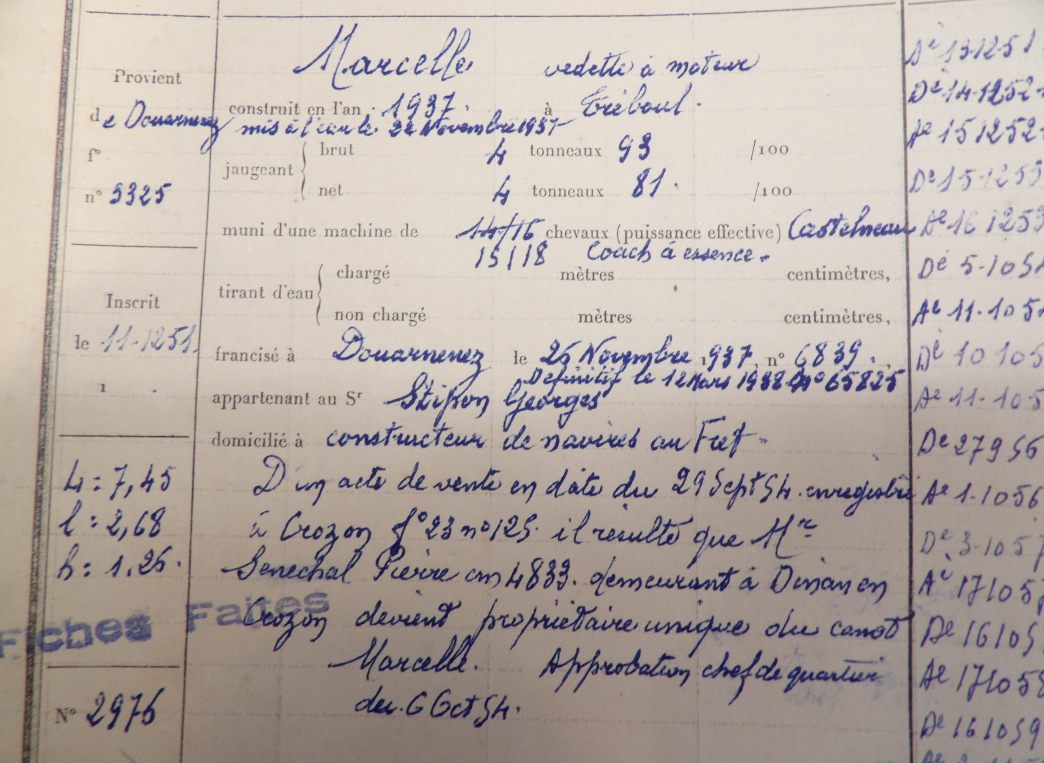 Marcelle vedette à moteur
Provient
de Douarnenez
f°
n° 3325
construit en l'an 1937. à Tréboul.
mis à l'eau le 24 Novembre 1937
jaugeant { brut 4 tonneaux 93 /100
net 4 tonneaux 81. /100
muni d'une machine de 14/16 chevaux (puissance effective) Castelneau
15/18 Coach à essence.
tirant d'eau { chargé mètres centimètres,
non chargé mètres centimètres,
Inscrit
le 11-1251.
1
francisé à Douarnenez le 25 Novembre 1937, n° 6839.
Définitif le 12 Mars 1938 n° 65825
appartenant au Sr Stipon Georges
domicilié à constructeur de navires au Fret.
L = 7,45
l = 2,68
h = 1,26.
D'un acte de vente en date du 29 Sept 54. enregistré
à Crozon f° 23 n° 125. il résulte que Mr
Senechal Pierre cm 4833. demeurant à Dinan en
Crozon devient propriétaire unique du canot
Marcelle. Approbation chef de quartier
du 6 Oct 54.
Fiches Faites
N° 2976
De 13-12-51
De 14-1252
Ae 151252
De 15-1253
Ae 16 1253
De 5-1054
Ae 11-105
De 10 105
Ae 11-105
De 27956
Ae 1-1056
De 3-1057
Ae 171057
De 16105
Ae 171058
De 161059